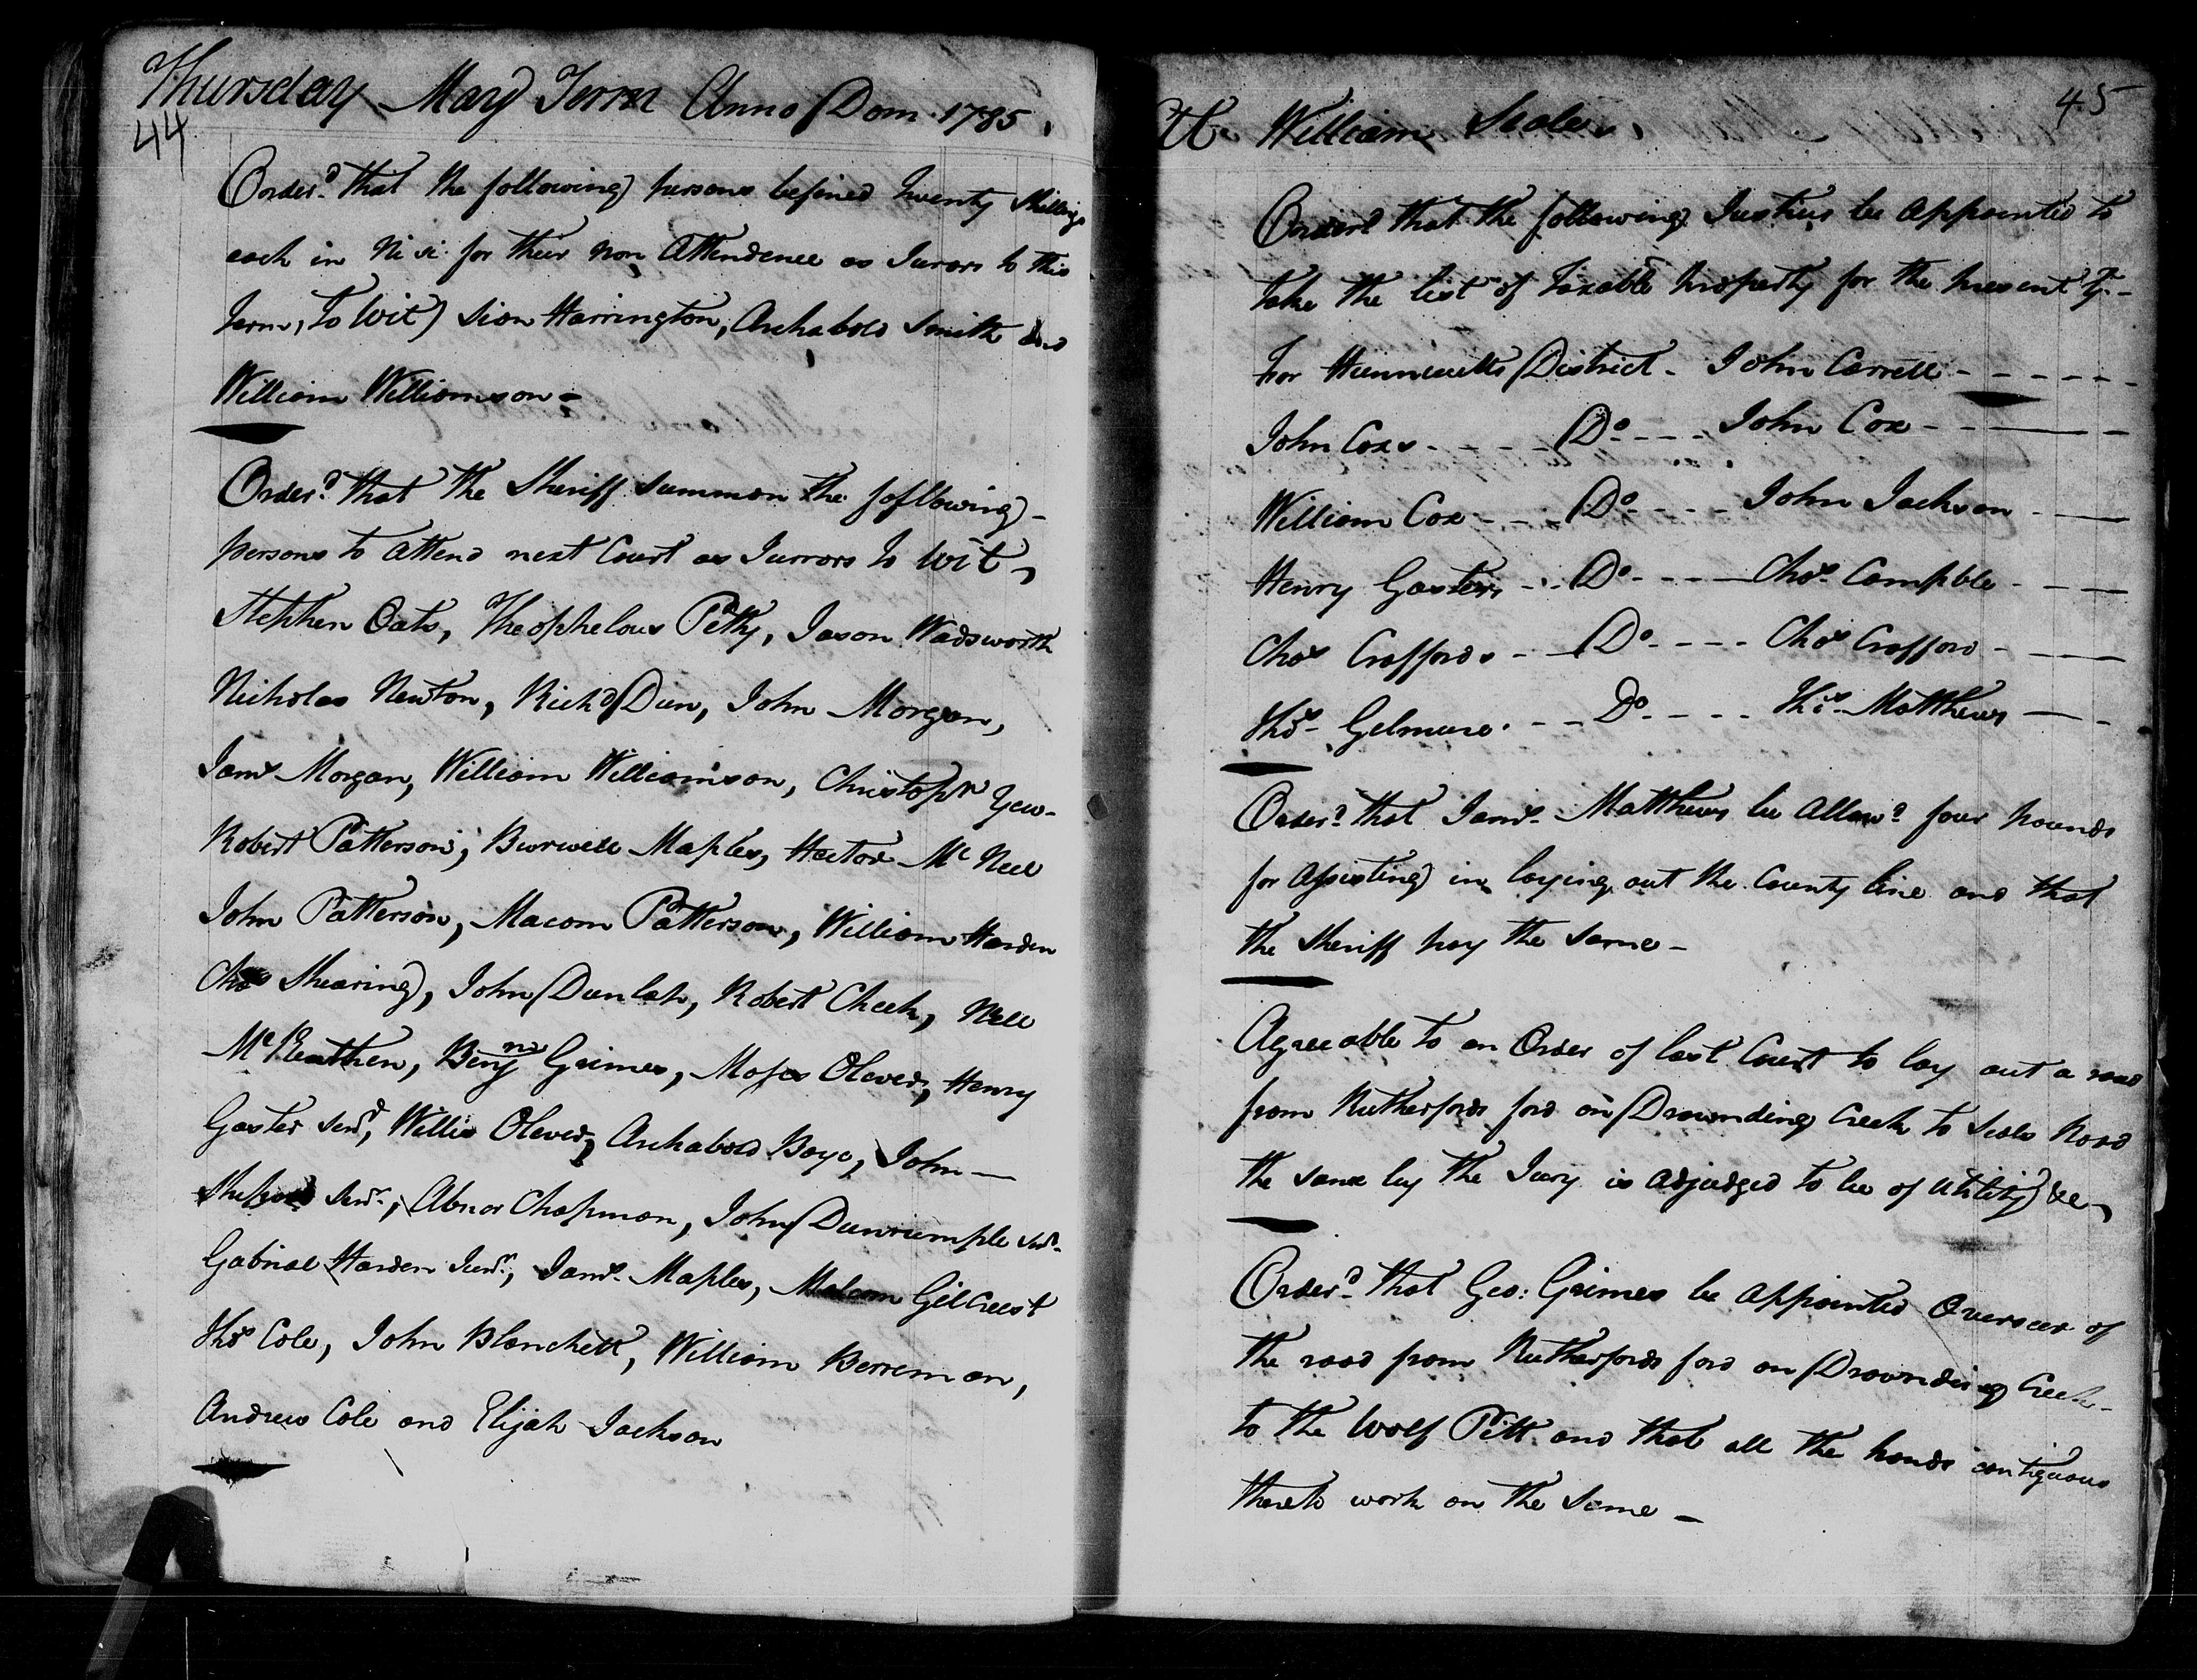 Thursday May Term Anno Dom. 1785.
44
Order'd that the following persons be fined twenty Shillings
each in Ni si for their non Attendence as Jurors to this
Term, to Wit) Sion Harrington, Archabold Smith and
William Williamson -
Order'd that the Sheriff Summon the following -
persons to Attend next Court as Jurrors to Wit,
Stephen Oats, Theophelous Petty, Jason Wadsworth
Nicholas Newton, Richd Dun, John Morgan,
Jams Morgan, William Williamson, Christophr Yew -
Robert Patterson, Burwell Maples, Hector McNeel
John Patterson, Macom Patterson, William Harden
Chas Shearing, John Dunlap, Robert Cheek, Neel
Mc, Benjn Grimes, Moses Olever, Henry
Gaster Senr, Willis Olever, Archabold Boye, John —
Senr, Abnor Chapman, John Dunrumple Senr
Gabriel Harden Junr, Jams Maples, Malcom Gilcreest
Thos Cole, John Blanchett, William Berreman,
Andrew Cole and Elijah Jackson
45
William Seale
Order'd that the following Justius be Appointed to
take the list of Taxable Property for the present Yr -
For District - John Carrell - - - - - -
John Coxs - - - - - Do - - - - John Cox - - — -
William Cox - - - Do - - - - John Jackson - —
Henry Gasters - - Do - - - — Chas Campble - - —
Chas Craffords - — Do - - - - Chas Crafford - —
Thos Gelmure - - - Do - - - - Thos Matthews — -
Order'd that Jams Matthews be Allow'd four pounds
for Assisting in laying out the County line and that
the Sheriff pay the same -
Agreeable to an Order of last Court to lay out a road
from Rutherfords ford on Drownding Creek to Seals Road
the same by the Jury is Adjudged to be of utility &c,
Order'd that Geo: Grimes be Appointed Overseer of
the road from Rutherfords ford on Drownding Creek -
to the Wolf Pitt and that all the hands contiguous
thereto work on the Same -